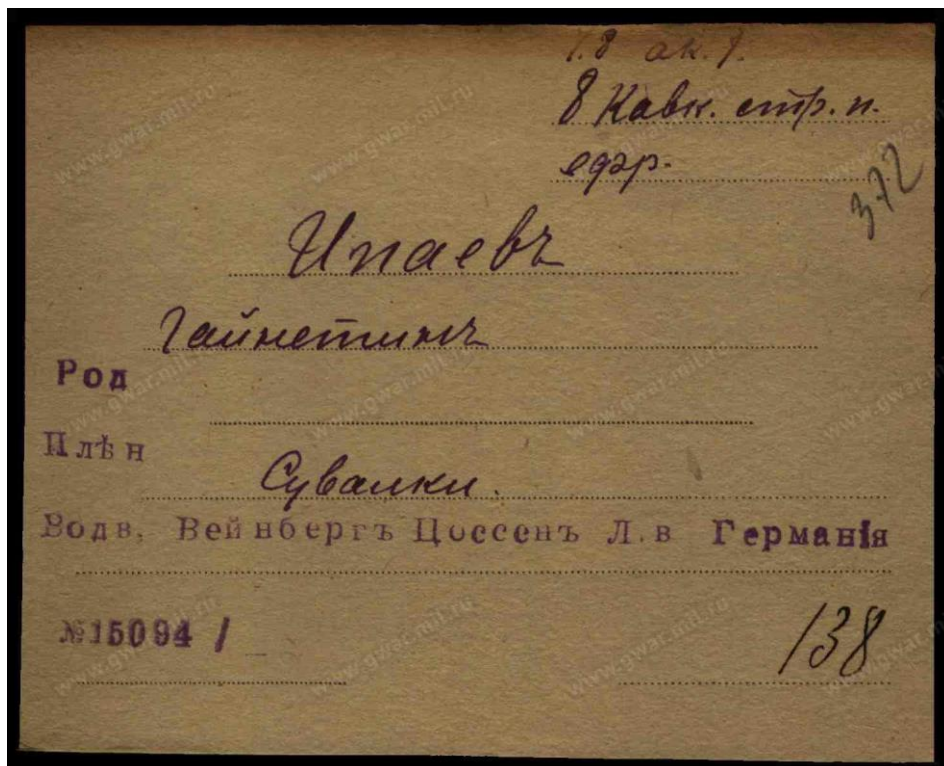 8 Кавк. стр. п.
372
Ипаевъ
Гайнетинъ
Род
Плѣн
Сувалки.
Водв. Вейнбергъ Цоссенъ Л.в Германія
№15094 /
138
www.gwar.mil.ru